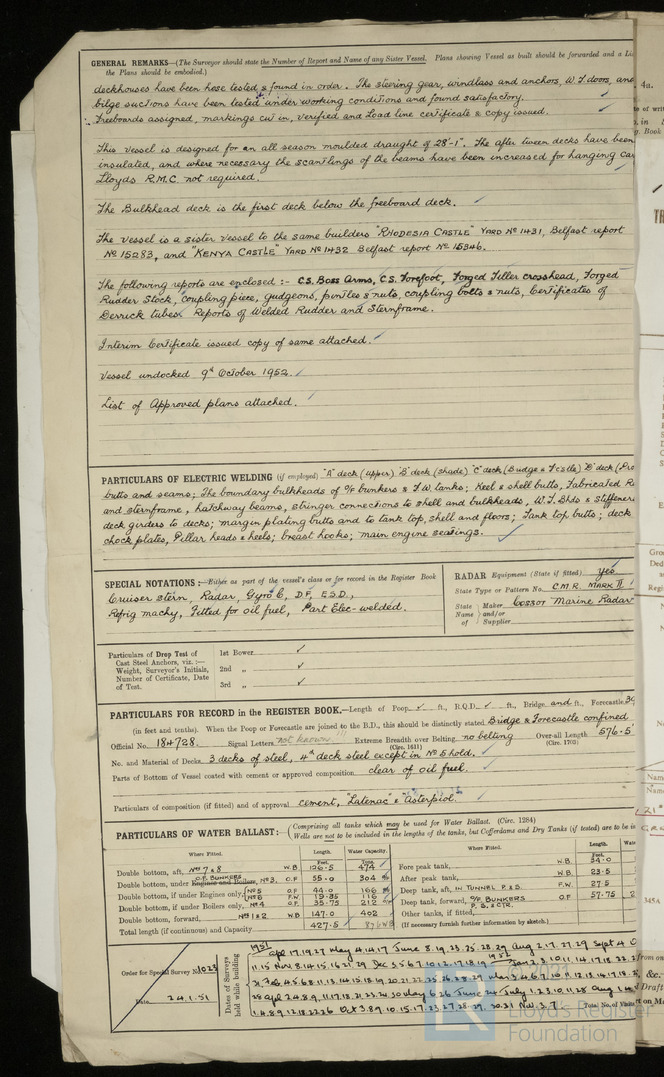 GENERAL REMARKS—(The Surveyor should state the Number of Report and Name of any Sister Vessel. Plans showing Vessel as built should be forwarded and a Li
the Plans should be embodied.)
deckhouses have been hose tested & found in order. The steering gear, windlass and anchors, W.T. doors, and
bilge suctions have been tested under working conditions and found satisfactory.
Freeboards assigned, markings cut in, verified and Load line certificate & copy issued.
This vessel is designed for an all season moulded draught of 28'-1". The after tween decks have been
insulated, and where necessary the scantlings of the beams have been increased for hanging car
Lloyds R.M.C. not required.
The Bulkhead deck is the first deck below the freeboard deck.
The vessel is a sister vessel to the same builders "RHODESIA CASTLE" YARD No 1431, Belfast report
No 15283, and "KENYA CASTLE" YARD No 1432 Belfast report No 15346.
The following reports are enclosed :- C.S. Boss Arms, C.S. Forefoot, Forged Tiller crosshead, Forged
Rudder Stock, coupling piece, gudgeons, pintles & nuts, coupling bolts & nuts, Certificates of
Derrick tubes. Reports of Welded Rudder and Sternframe.
Interim Certificate issued copy of same attached.
Vessel undocked 9th October 1952.
List of Approved plans attached.
PARTICULARS OF ELECTRIC WELDING (if employed) "A" deck (upper) "B" deck (shade) "C" deck (Bridge & F'castle) "D" deck (Pro
butts and seams; The boundary bulkheads of O/F bunkers & F.W. tanks; Keel & shell butts, Fabricated R
and sternframe, hatchway beams, stringer connections to shell and bulkheads, W.T. Bhds & stiffeners
deck girders to decks; margin plating butts and to tank top, shell and floors; Tank top butts; deck
chock plates, Pillar heads & heels; breast hooks; main engine seatings.
SPECIAL NOTATIONS :—Either as part of the vessel's class or for record in the Register Book
Cruiser stern, Radar, Gyro C, D.F, E.S.D.,
Refrig machy, Fitted for oil fuel, Part Elec-welded.
RADAR Equipment (State if fitted) yes
State Type or Pattern No. C.M.R. MARK II
State Name of Maker and/or Supplier Cossor Marine Radar
Particulars of Drop Test of
Cast Steel Anchors, viz. :—
Weight, Surveyor's Initials,
Number of Certificate, Date
of Test.
1st Bower
2nd „
3rd „
PARTICULARS FOR RECORD in the REGISTER BOOK.—Length of Poop ft., R.Q.D. ft., Bridge and ft., Forecastle
(in feet and tenths). When the Poop or Forecastle are joined to the B.D., this should be distinctly stated Bridge & Forecastle confined
Official No. 184728. Signal Letters not known Extreme Breadth over Belting no belting Over-all Length 576.5
(Circ. 1611) (Circ. 1703)
No. and Material of Decks 3 decks of steel, 4th deck steel except in No 5 hold.
Parts of Bottom of Vessel coated with cement or approved composition clear of oil fuel.
Particulars of composition (if fitted) and of approval cement, "Latenac" &
PARTICULARS OF WATER BALLAST:—(Comprising all tanks which may be used for Water Ballast. (Circ. 1284)
Wells are not to be included in the lengths of the tanks, but Cofferdams and Dry Tanks (if tested) are to be in
Where Fitted. Length. Water Capacity.
Feet. Tons.
Double bottom, aft, Nos 7 & 8 W.B 126.5 474
Double bottom, under Engines and Boilers, O.F. BUNKERS No 3. O.F 55.0 304
Double bottom, if under Engines only, No 5 O.F 44.0 166
No 6 F.W 19.25 116
Double bottom, if under Boilers only, No 4 O.F 35.75 212
Double bottom, forward, Nos 1 & 2 W.B 147.0 402
Total length (if continuous) and Capacity 427.5
Where Fitted. Length. Wate
Feet.
Fore peak tank, W.B. 34.0
After peak tank, W.B. 23.5
Deep tank, aft, IN TUNNEL P & S. F.W. 27.5
Deep tank, forward, O/F BUNKERS P. S. & CTR. O.F 57.75
Other tanks, if fitted,
(If necessary furnish further information by sketch.)
Order for Special Survey No. 1023
Date 24.1.51
Dates of Surveys held while building
1951
1952
Total No. of Visits
Lloyd's Register
Foundation